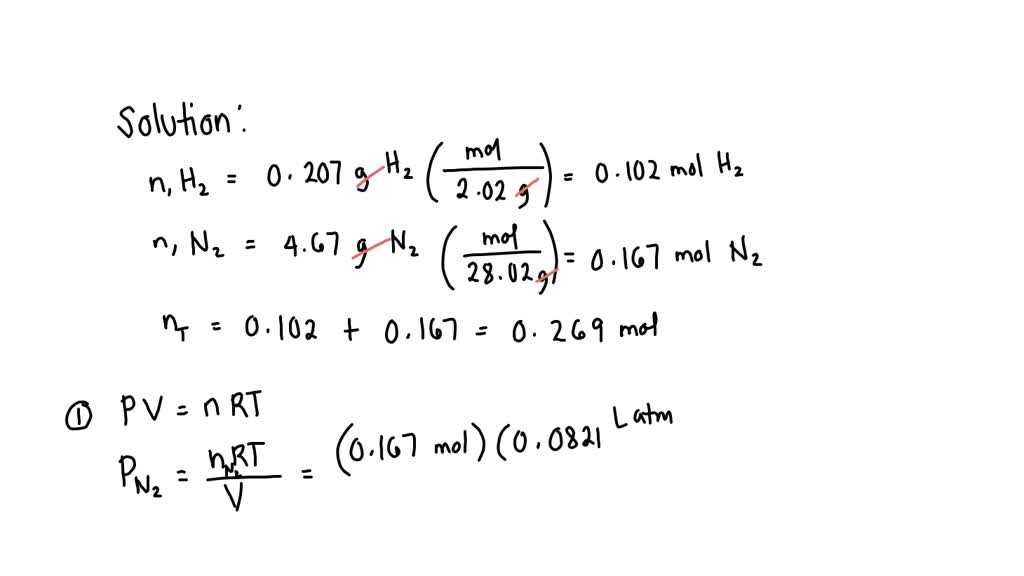 Solution:
n, H₂ = 0.207 g H₂ (mol / 2.02 g) = 0.102 mol H₂
n, N₂ = 4.67 g N₂ (mol / 28.02 g) = 0.167 mol N₂
n_T = 0.102 + 0.167 = 0.269 mol
① PV = nRT
P_N₂ = n_N₂RT / V = (0.167 mol) (0.0821 L atm